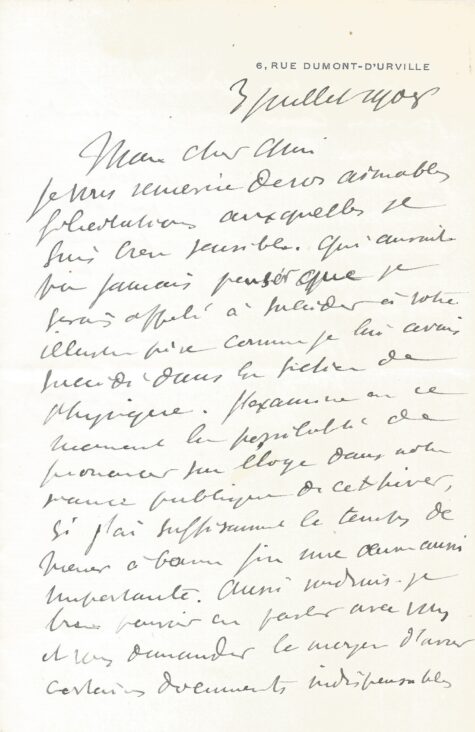 6, RUE DUMONT-D'URVILLE
3 juillet 1908
Mon cher Ami
Je vous remercie de vos aimables
félicitations auxquelles je
suis bien sensible. Qui aurait
pu jamais penser que je
serais appelé à succéder à votre
illustre père comme je lui avais
succédé dans la section de
Physique. J'examine en ce
moment la possibilité de
prononcer son éloge dans notre
séance publique de cet hiver,
si j'ai suffisamment le temps de
mener à bonne fin une œuvre aussi
importante. Aussi voudrais-je
bien pouvoir en parler avec vous
et vous demander le moyen d'avoir
certains documents indispensables